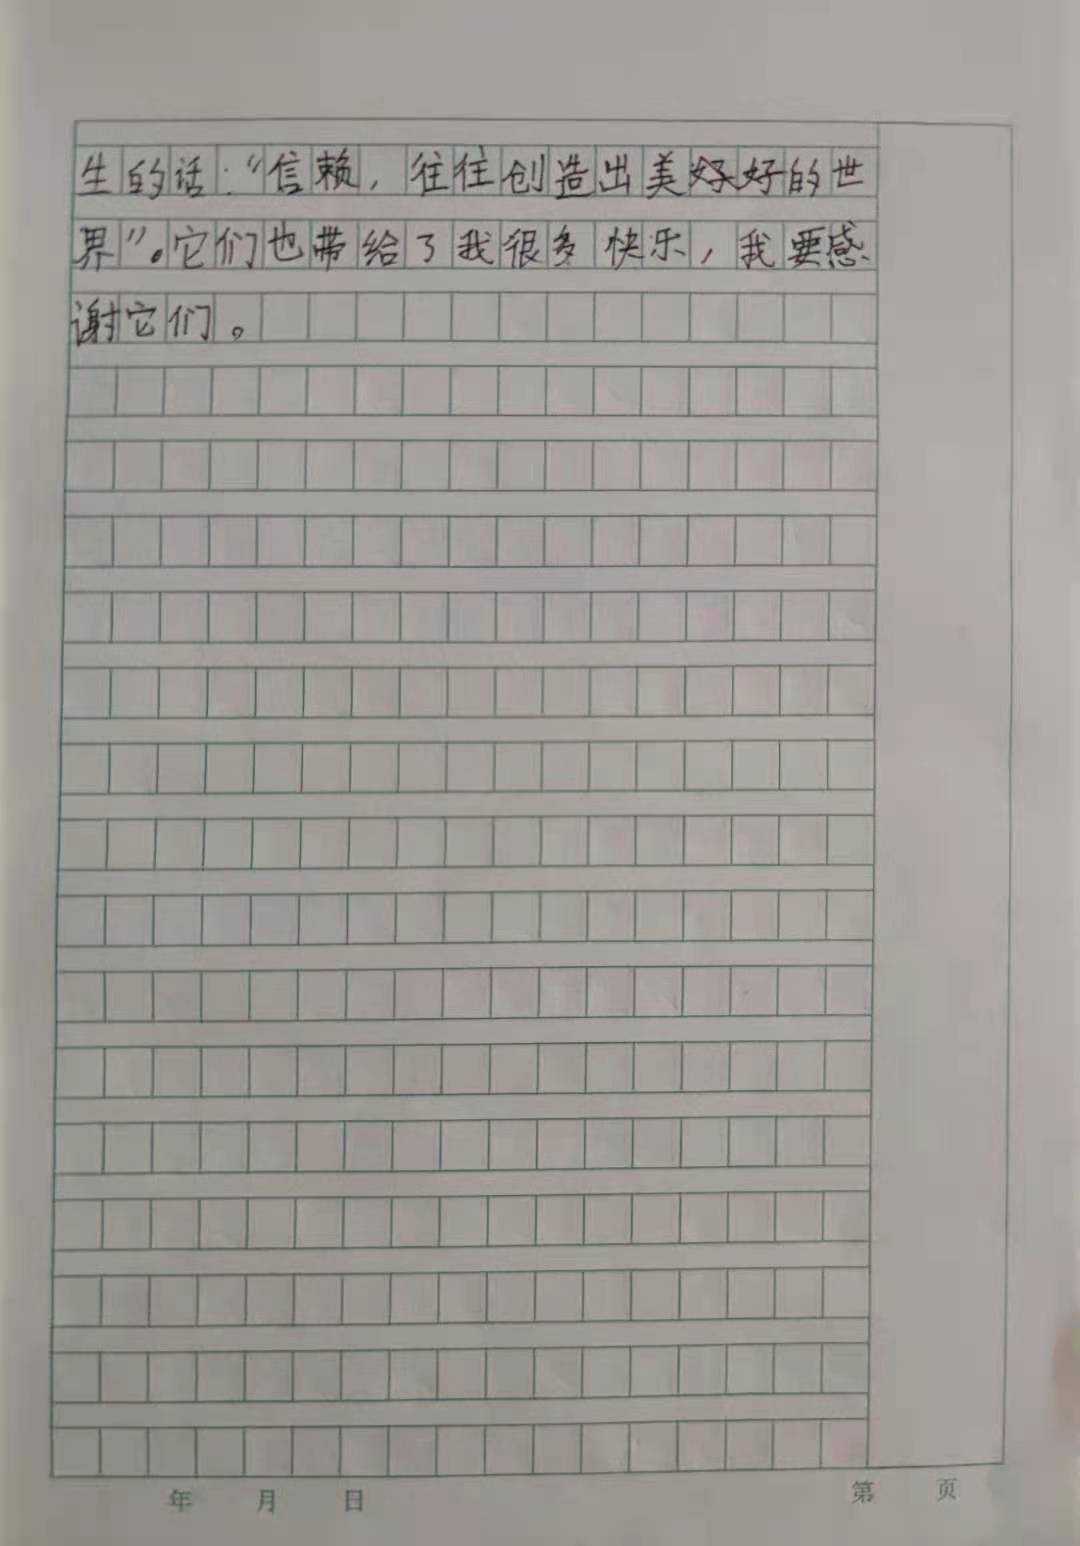 生的话：“信赖，往往创造出美好的世
界”。它们也带给了我很多快乐，我要感
谢它们。
年 月 日 第 页